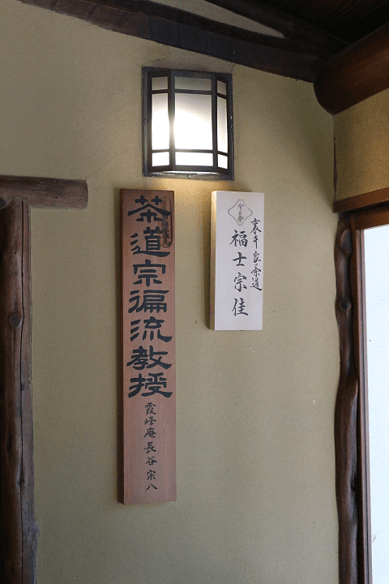 茶道宗徧流教授
霞峰庵長谷宗八
表千家茶道
福士宗佳